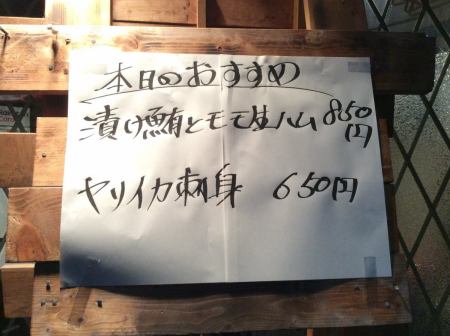 本日のおすすめ
漬け鮪とモモ生ハム 850円
ヤリイカ刺身 650円